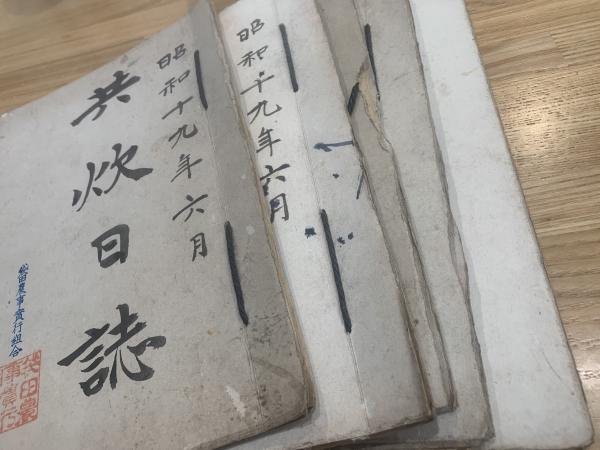 昭和十九年六月
共炊日誌
袋田農事實行組合
昭和十九年六月